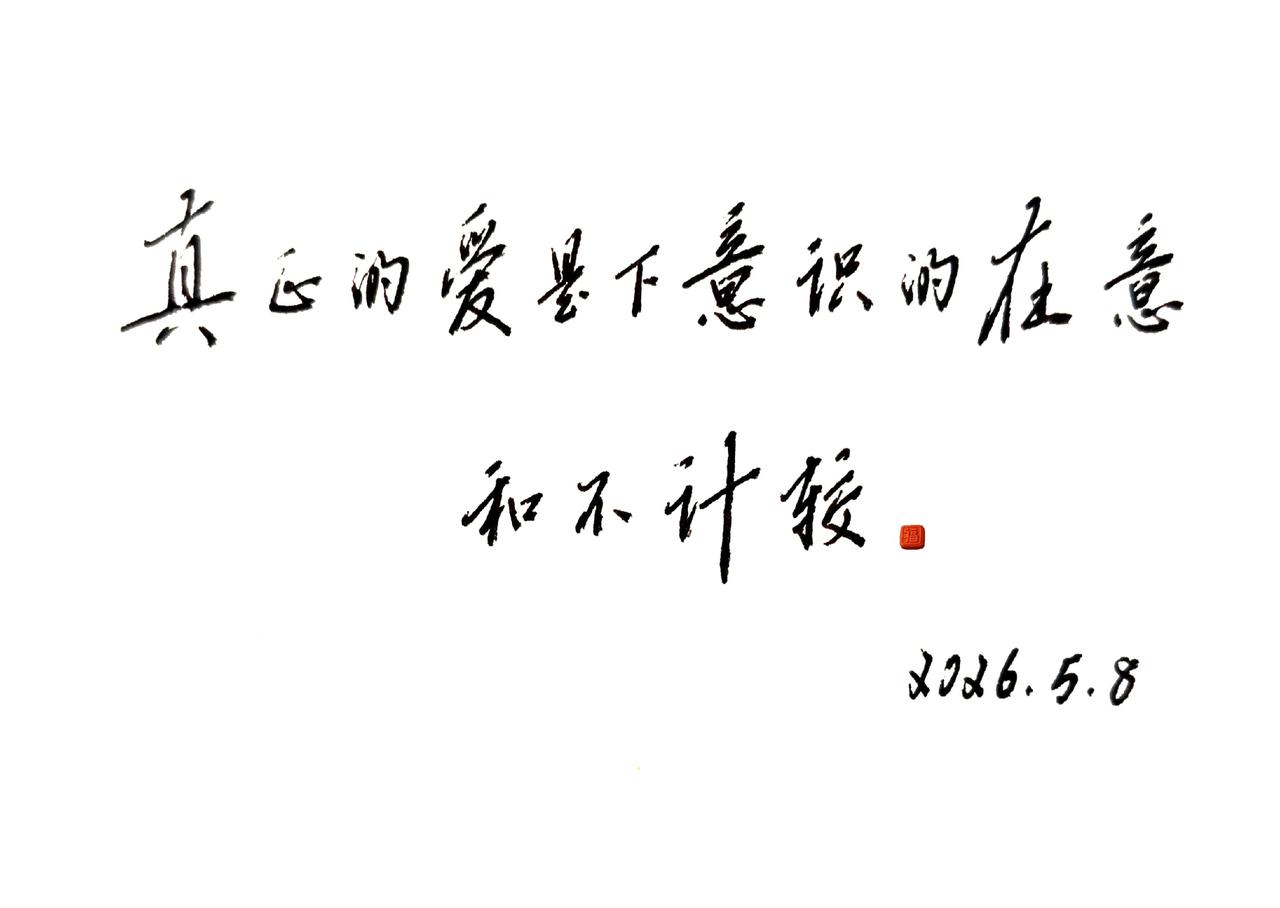 真正的爱是下意识的在意
和不计较
福
2026.5.8